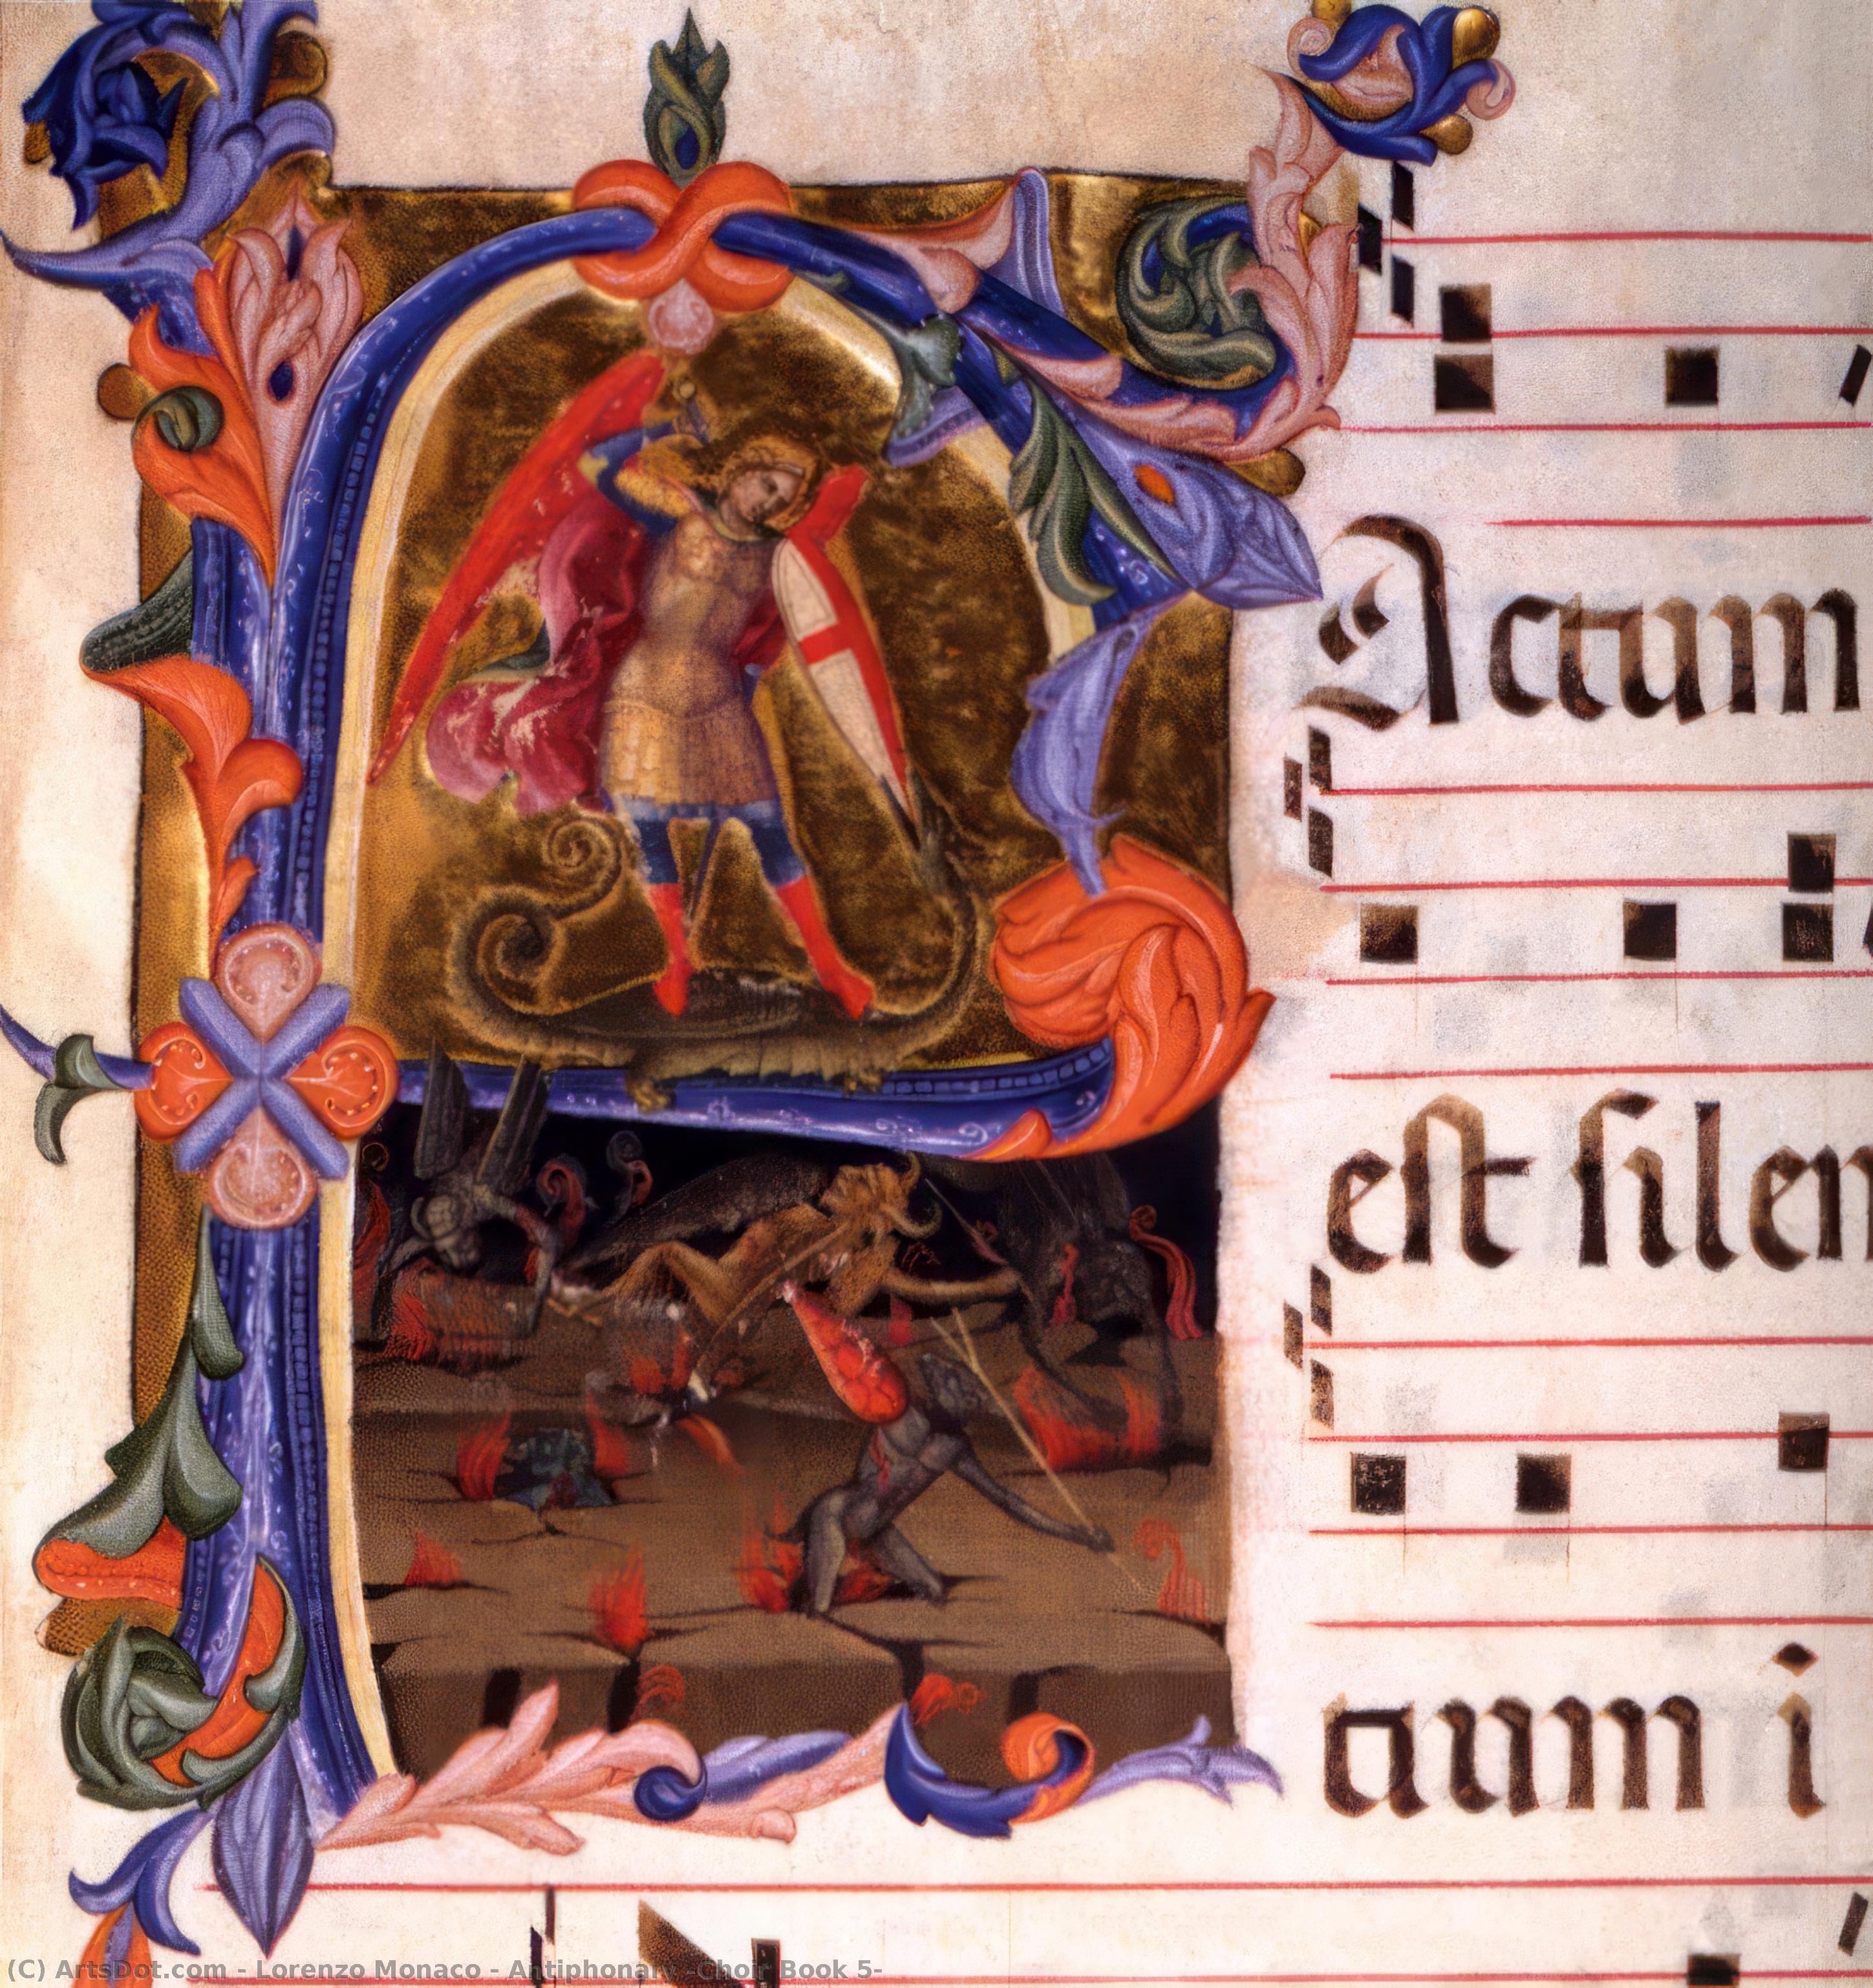 Actum
est silen
tium i
(C) ArtsDot.com - Lorenzo Monaco - Antiphonary -Choir Book 5-